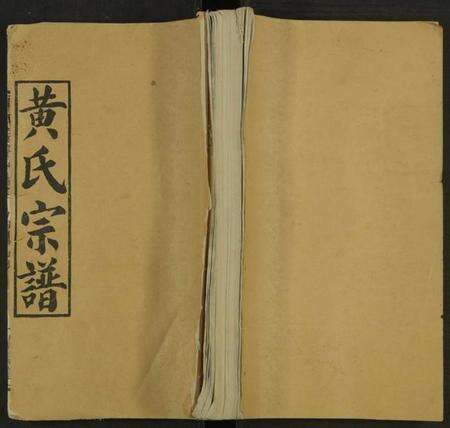 黄氏宗譜